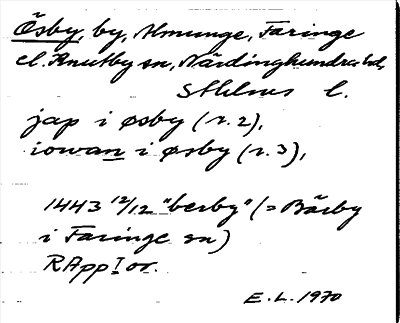 Ösby, by, Almunge, Faringe
el. Knutby sn, Närdinghundra hd,
Sthlms l.
jap i øsby (r.2),
iowan i øsby (r.3),
1443 12/12 "berby" (= Bärby
i Faringe sn)
RApp I or.
E.L. 1970